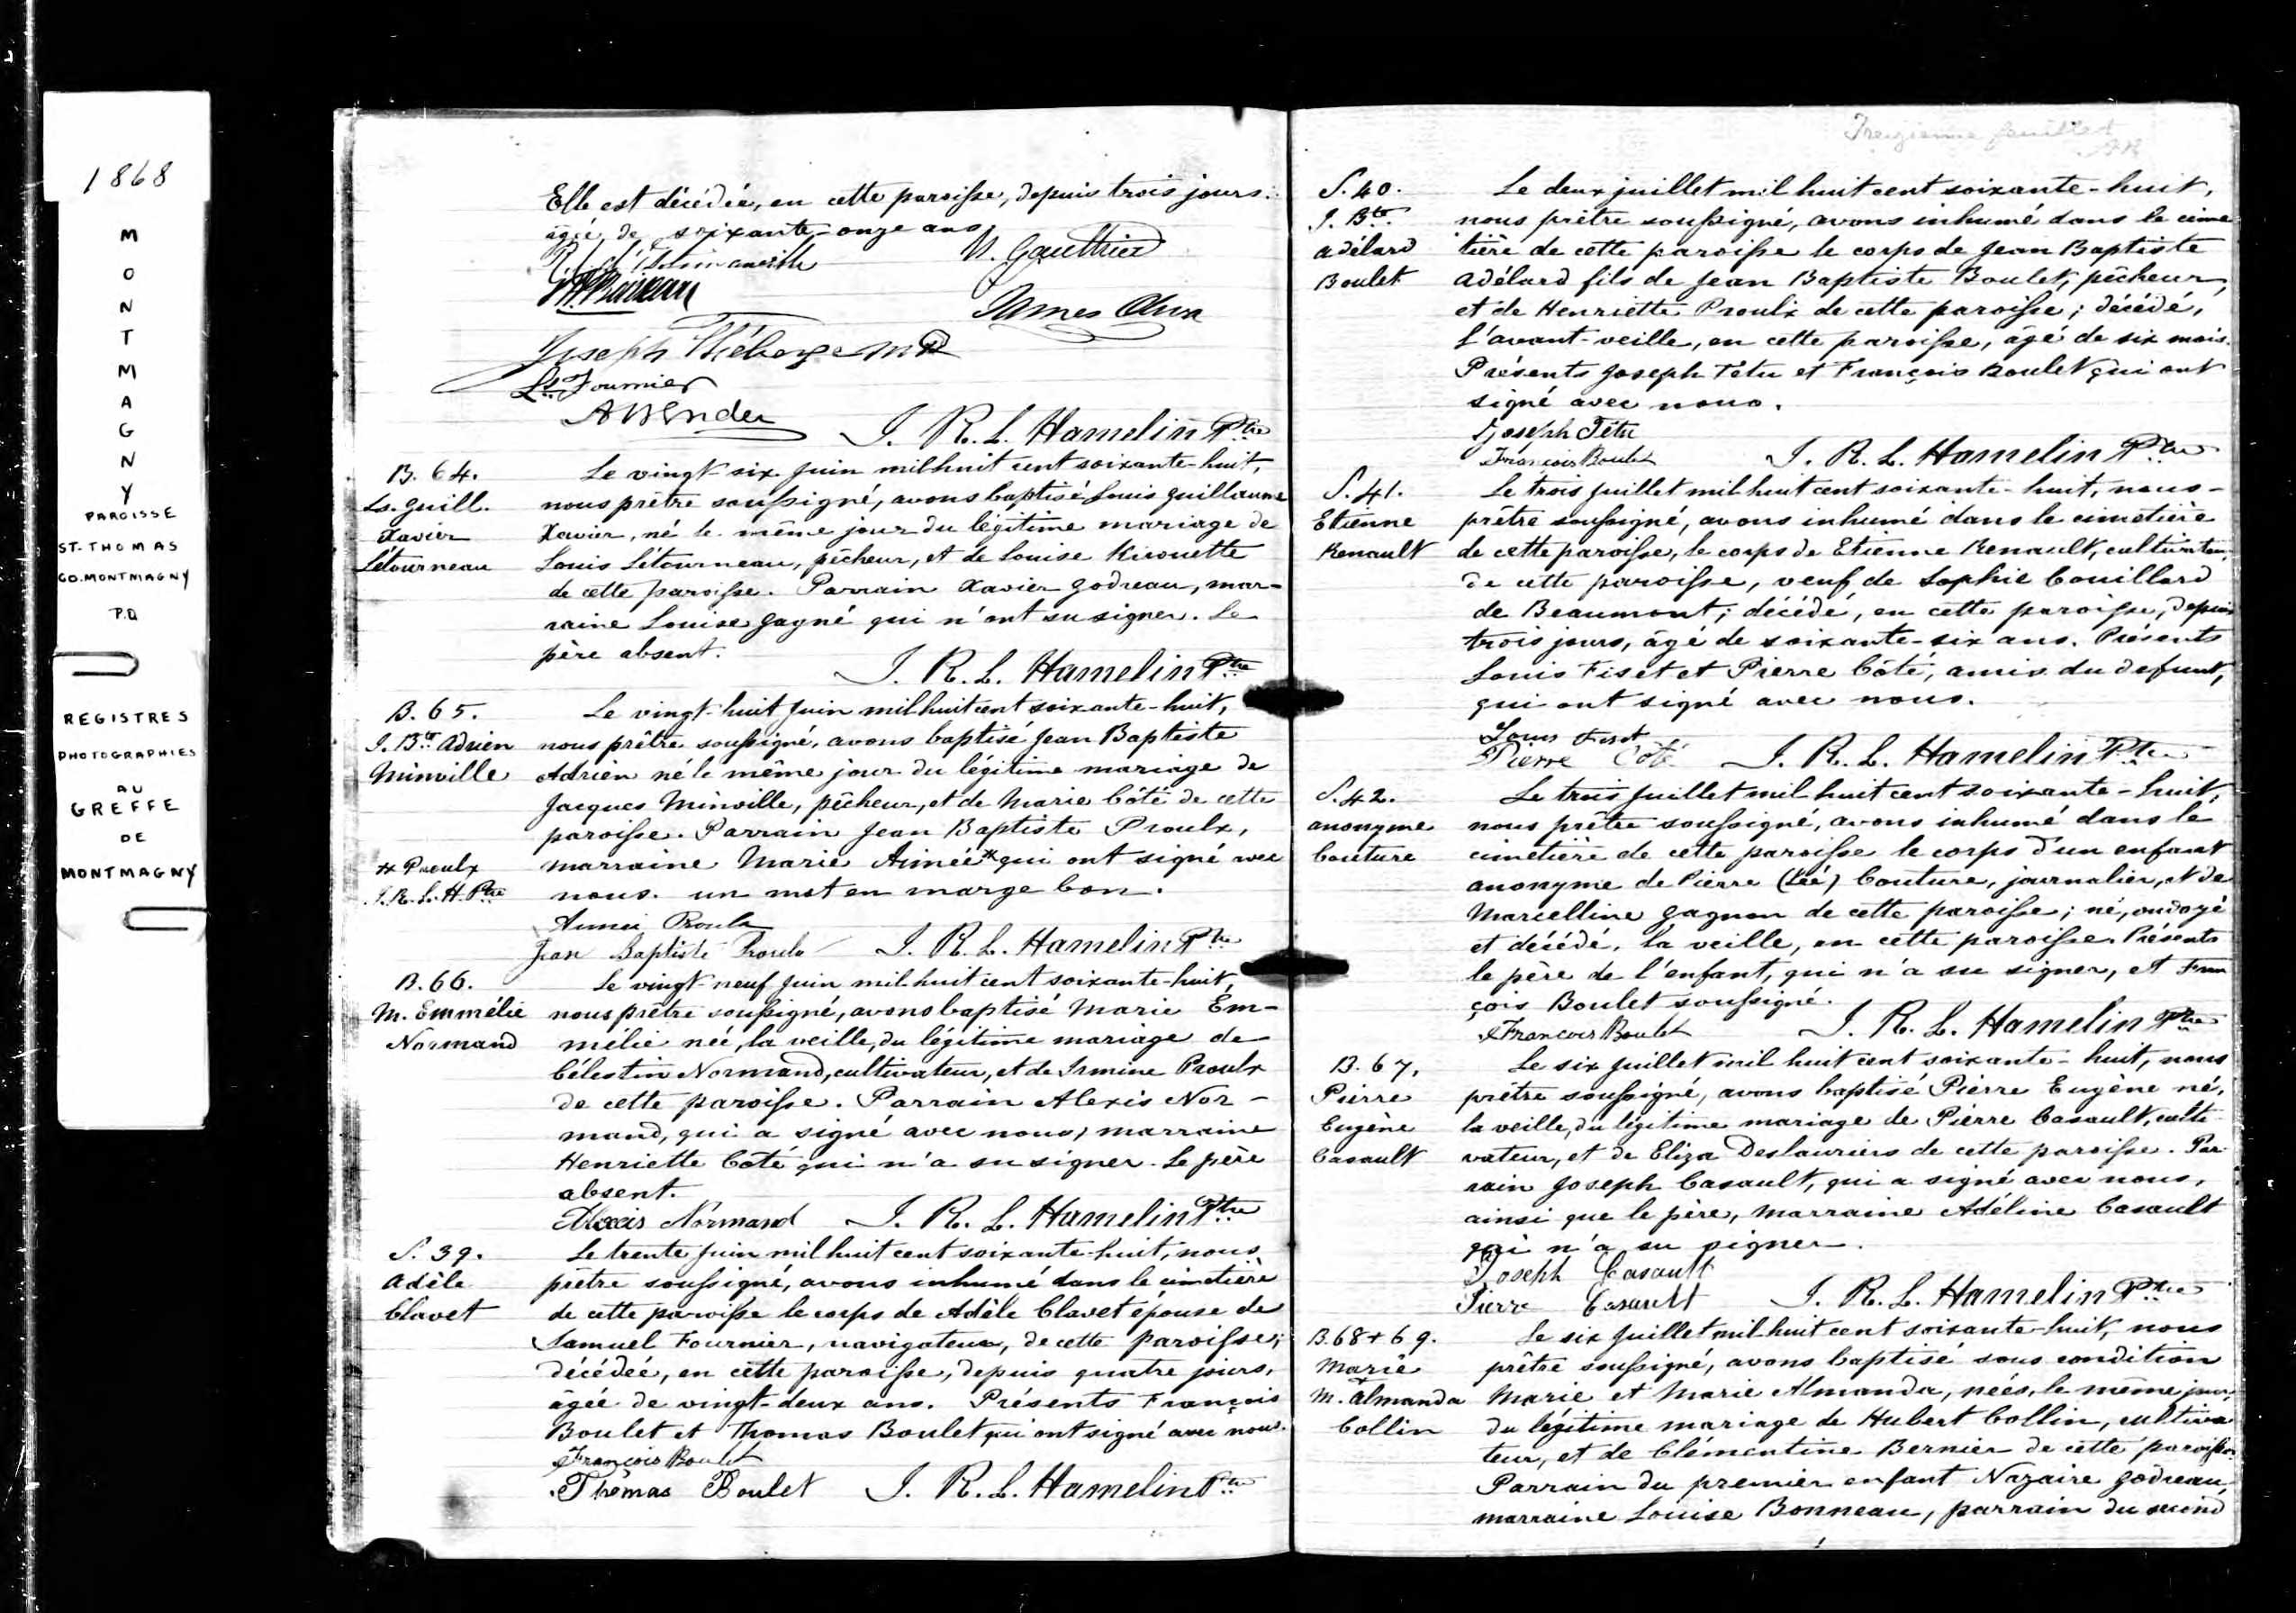 1868
MONTMAGNY
PAROISSE
ST-THOMAS
CO. MONTMAGNY
P.Q
REGISTRES
PHOTOGRAPHIES
AU
GREFFE
DE
MONTMAGNY
Elle est décédée, en cette paroisse, depuis trois jours.
âgée de soixante-onze ans
N. Gauthier
James Oliva
Joseph Théberge MD
Ls. Fournier
A Bender
J. R. L. Hamelin Ptre
B. 64.
Ls. Guill.
Xavier
Létourneau
Le vingt-six Juin mil huit cent soixante-huit,
nous prêtre soussigné, avons baptisé Louis Guillaume
Xavier, né le même jour du légitime mariage de
Louis Létourneau, pêcheur, et de Louise Kirouette
de cette paroisse. Parrain Xavier Godreau, mar-
raine Louise Gagné qui n'ont su signer. Le
père absent.
J. R. L. Hamelin Ptre
B. 65.
J. Bte Adrien
Minville
Le vingt-huit Juin mil huit cent soixante-huit,
nous prêtre soussigné, avons baptisé Jean Baptiste
Adrien né le même jour du légitime mariage de
Jacques Minville, pêcheur, et de Marie Côté de cette
paroisse. Parrain Jean Baptiste Proulx,
marraine Marie Aimée * qui ont signé avec
nous. un mot en marge bon.
* Proulx
J. R. L. H. Ptre
Aimée Proulx
Jean Baptiste Proulx J. R. L. Hamelin Ptre
B. 66.
M. Emmélie
Normand
Le vingt-neuf Juin mil huit cent soixante-huit,
nous prêtre soussigné, avons baptisé Marie Em-
mélie née, la veille, du légitime mariage de
Célestin Normand, cultivateur, et de Irmine Proulx
de cette paroisse. Parrain Alexis Nor-
mand, qui a signé avec nous, marraine
Henriette Côté qui n'a su signer. Le père
absent.
Alexis Normand J. R. L. Hamelin Ptre
S. 39.
Adèle
Clavet
Le trente Juin mil huit cent soixante-huit, nous
prêtre soussigné, avons inhumé dans le cimetière
de cette paroisse le corps de Adèle Clavet épouse de
Samuel Fournier, navigateur, de cette paroisse;
décédée, en cette paroisse, depuis quatre jours,
âgée de vingt-deux ans. Présents François
Boulet et Thomas Boulet qui ont signé avec nous.
François Boulet
Thomas Boulet J. R. L. Hamelin Ptre
Treizième feuillet
S. 40.
J. Bte
Adélard
Boulet
Le deux juillet mil huit cent soixante-huit,
nous prêtre soussigné, avons inhumé dans le cime
tière de cette paroisse le corps de Jean Baptiste
Adélard fils de Jean Baptiste Boulet, pêcheur,
et de Henriette Proulx de cette paroisse; décédé,
l'avant-veille, en cette paroisse, âgé de six mois.
Présents Joseph Têtu et François Boulet qui ont
signé avec nous.
Joseph Têtu
François Boulet J. R. L. Hamelin Ptre
S. 41.
Etienne
Renault
Le trois juillet mil huit cent soixante-huit, nous
prêtre soussigné, avons inhumé dans le cimetière
de cette paroisse, le corps de Etienne Renault, cultivateur,
de cette paroisse, veuf de Sophie Couillard
de Beaumont; décédé, en cette paroisse, depuis
trois jours, âgé de soixante-six ans. Présents
Louis Fiset et Pierre Côté, amis du defunt,
qui ont signé avec nous.
Louis Fiset
Pierre Coté J. R. L. Hamelin Ptre
S. 42.
anonyme
Couture
Le trois juillet mil huit cent soixante-huit,
nous prêtre soussigné, avons inhumé dans le
cimetière de cette paroisse le corps d'un enfant
anonyme de Pierre (Léé) Couture, journalier, et de
Marcelline Gagnon de cette paroisse; né, ondoyé
et décédé, la veille, en cette paroisse. Présents
le père de l'enfant, qui n'a su signer, et Fran
çois Boulet soussigné.
François Boulet J. R. L. Hamelin Ptre
B. 67.
Pierre
Eugène
Casault
Le six Juillet mil huit cent soixante-huit, nous
prêtre soussigné, avons baptisé Pierre Eugène né,
la veille, du légitime mariage de Pierre Casault, culti
vateur, et de Eliza Deslauriers de cette paroisse. Par
rain Joseph Casault, qui a signé avec nous,
ainsi que le père, marraine Adéline Casault
qui n'a su signer.
Joseph Casault
Pierre Casault J. R. L. Hamelin Ptre
B. 68 + 69.
Marie
+
M. Almanda
Collin
Le six Juillet mil huit cent soixante-huit, nous
prêtre soussigné, avons baptisé sous condition
Marie et Marie Almanda, nées, le même jour,
du légitime mariage de Hubert Collin, cultiva
teur, et de Clémentine Bernier de cette paroisse.
Parrain du premier enfant Nazaire Godreau,
marraine Louise Bonneau, parrain du second